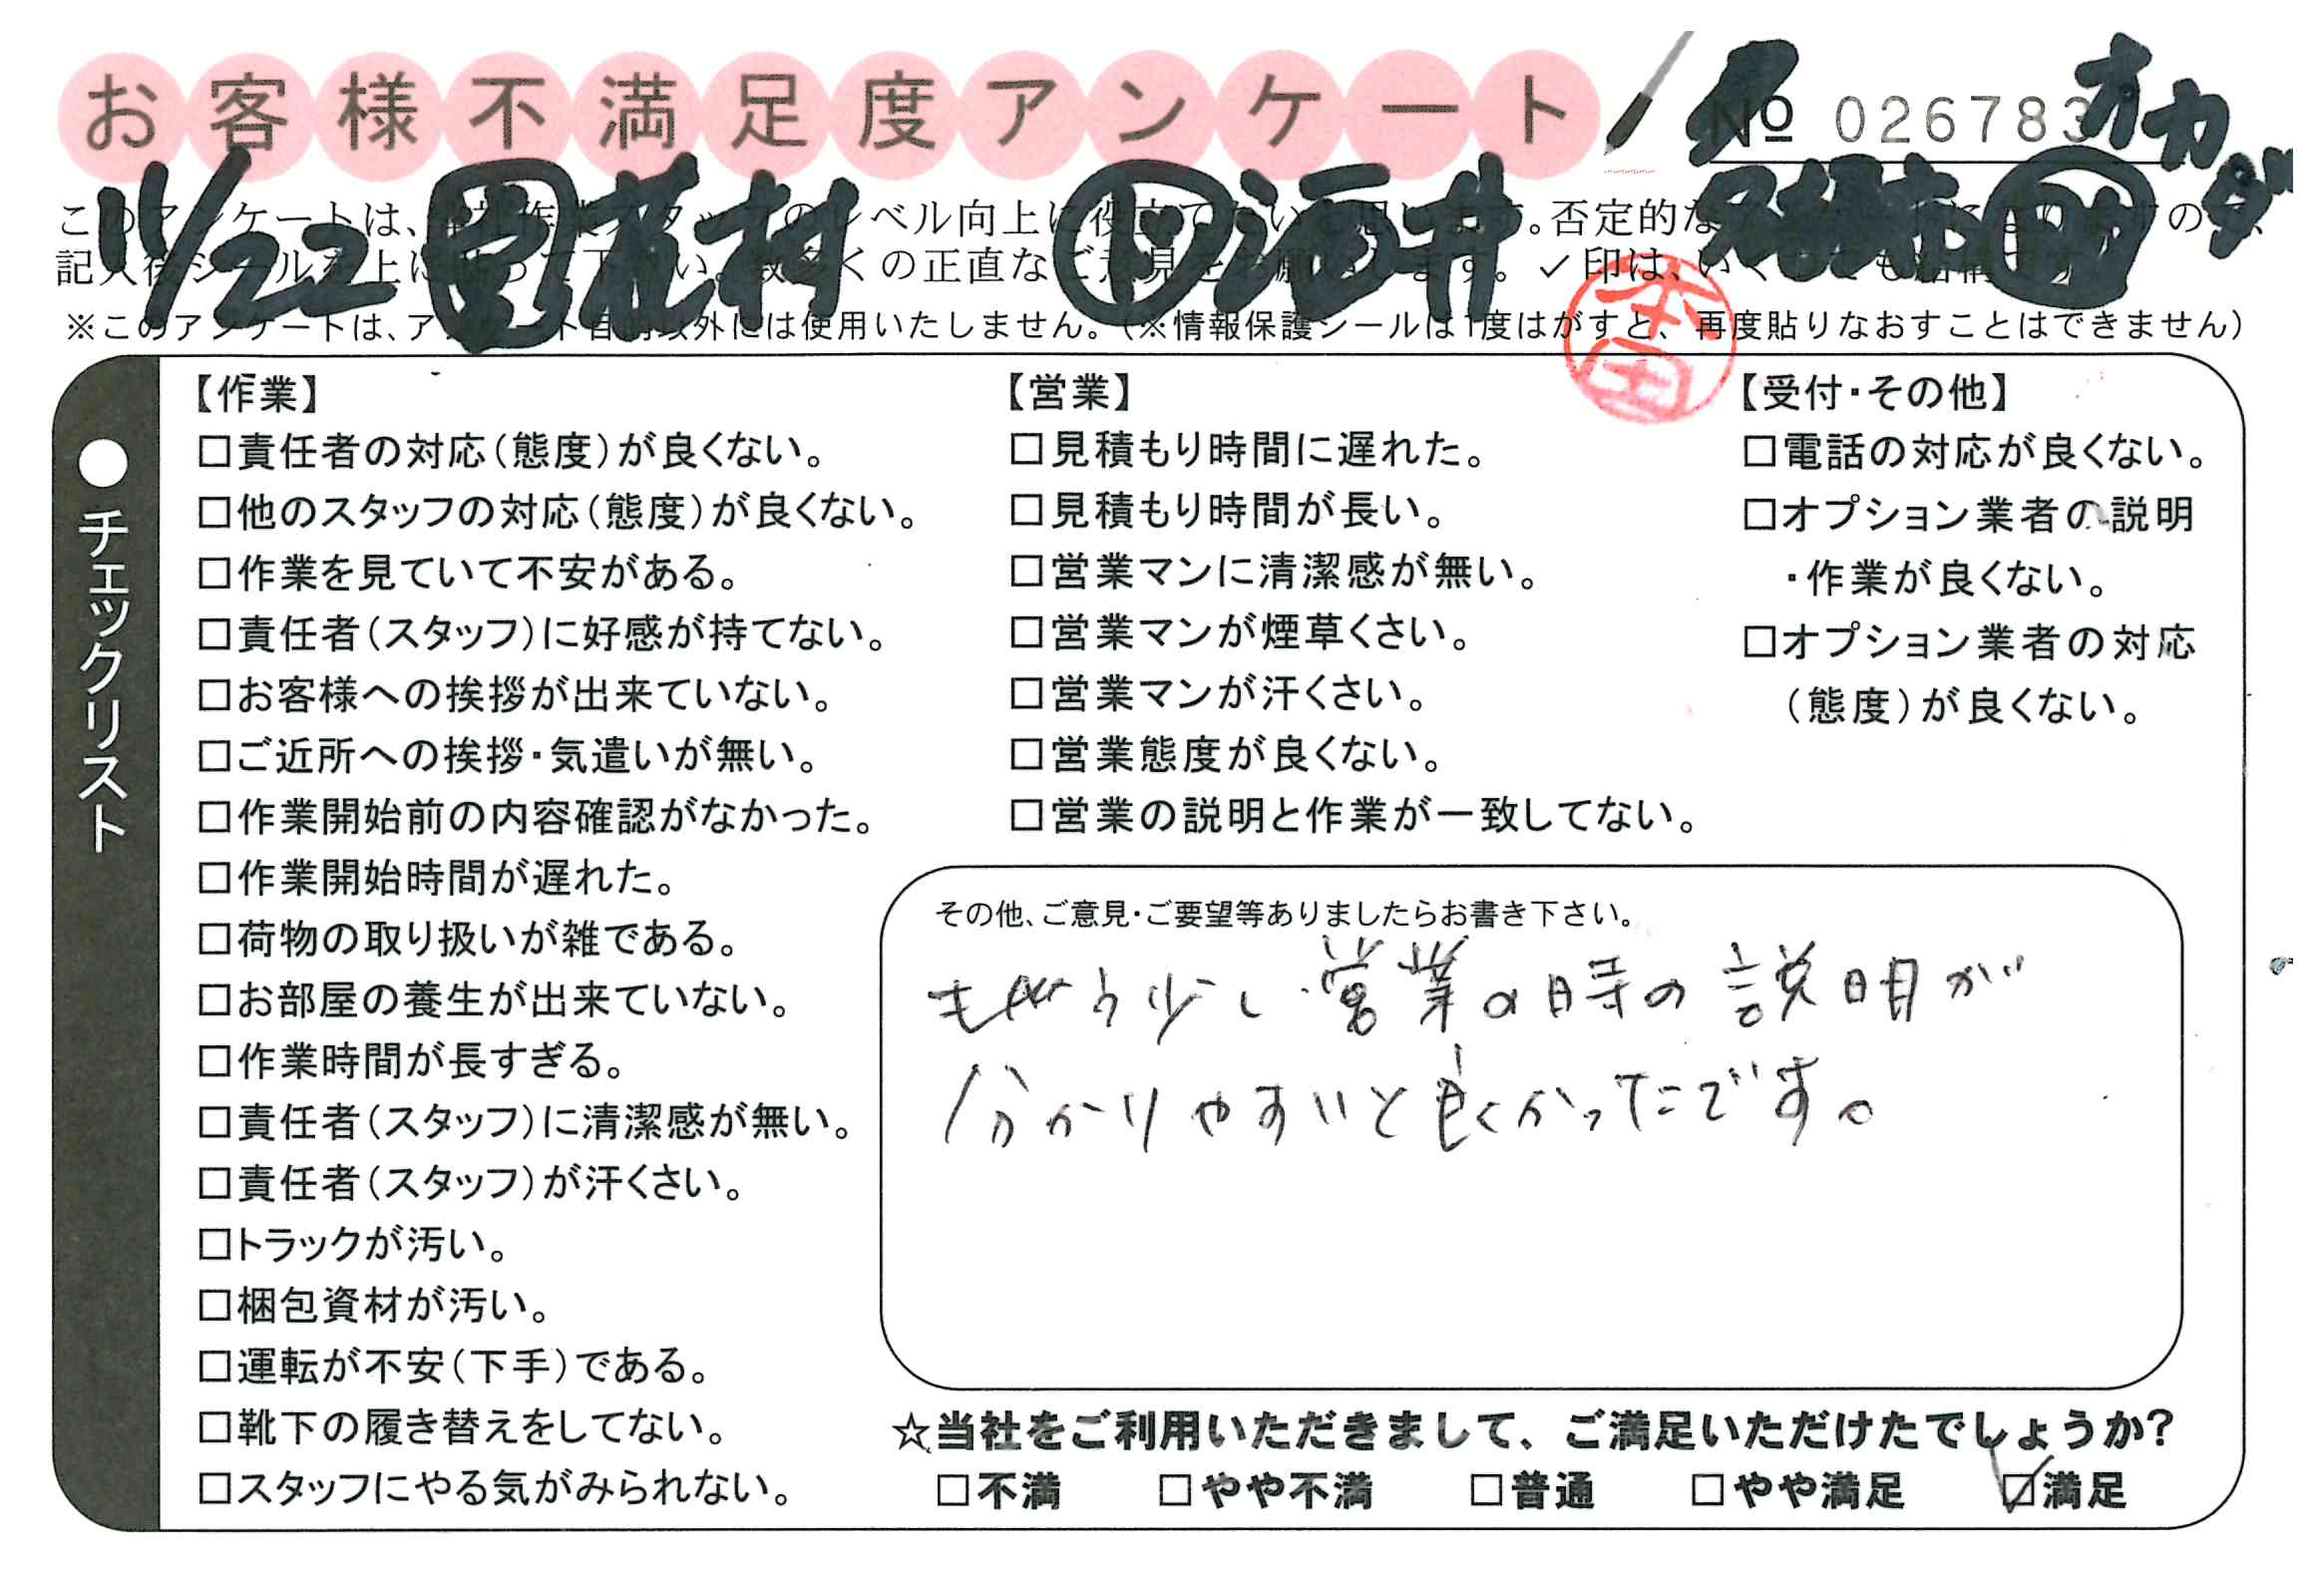 お客様不満足度アンケート
№ 026783
オカダ
11/22 花村 酒井
このアンケートは、
レベル向上に役立て
。否定的な
記入後シールを上に貼って下さい。数多くの正直なご意見をお願いします。✓印は、いくつでも結構です
※このアンケートは、アンケート目的以外には使用いたしません。(※情報保護シールは1度はがすと、再度貼りなおすことはできません)
本田
●チェックリスト
【作業】
□責任者の対応(態度)が良くない。
□他のスタッフの対応(態度)が良くない。
□作業を見ていて不安がある。
□責任者(スタッフ)に好感が持てない。
□お客様への挨拶が出来ていない。
□ご近所への挨拶・気遣いが無い。
□作業開始前の内容確認がなかった。
□作業開始時間が遅れた。
□荷物の取り扱いが雑である。
□お部屋の養生が出来ていない。
□作業時間が長すぎる。
□責任者(スタッフ)に清潔感が無い。
□責任者(スタッフ)が汗くさい。
□トラックが汚い。
□梱包資材が汚い。
□運転が不安(下手)である。
□靴下の履き替えをしてない。
□スタッフにやる気がみられない。
【営業】
□見積もり時間に遅れた。
□見積もり時間が長い。
□営業マンに清潔感が無い。
□営業マンが煙草くさい。
□営業マンが汗くさい。
□営業態度が良くない。
□営業の説明と作業が一致してない。
【受付・その他】
□電話の対応が良くない。
□オプション業者の説明
・作業が良くない。
□オプション業者の対応
(態度)が良くない。
その他、ご意見・ご要望等ありましたらお書き下さい。
もう少し営業の時の説明が
分かりやすいと良くかったです。
☆当社をご利用いただきまして、ご満足いただけたでしょうか?
□不満 □やや不満 □普通 □やや満足 ☑満足